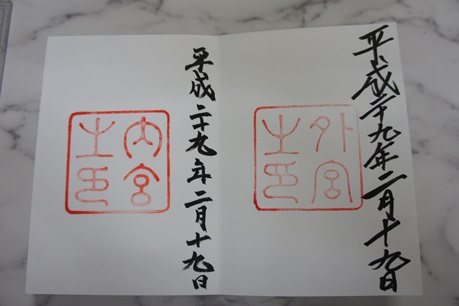 平成二十九年二月十九日
外宮
之印
平成二十九年二月十九日
内宮
之印